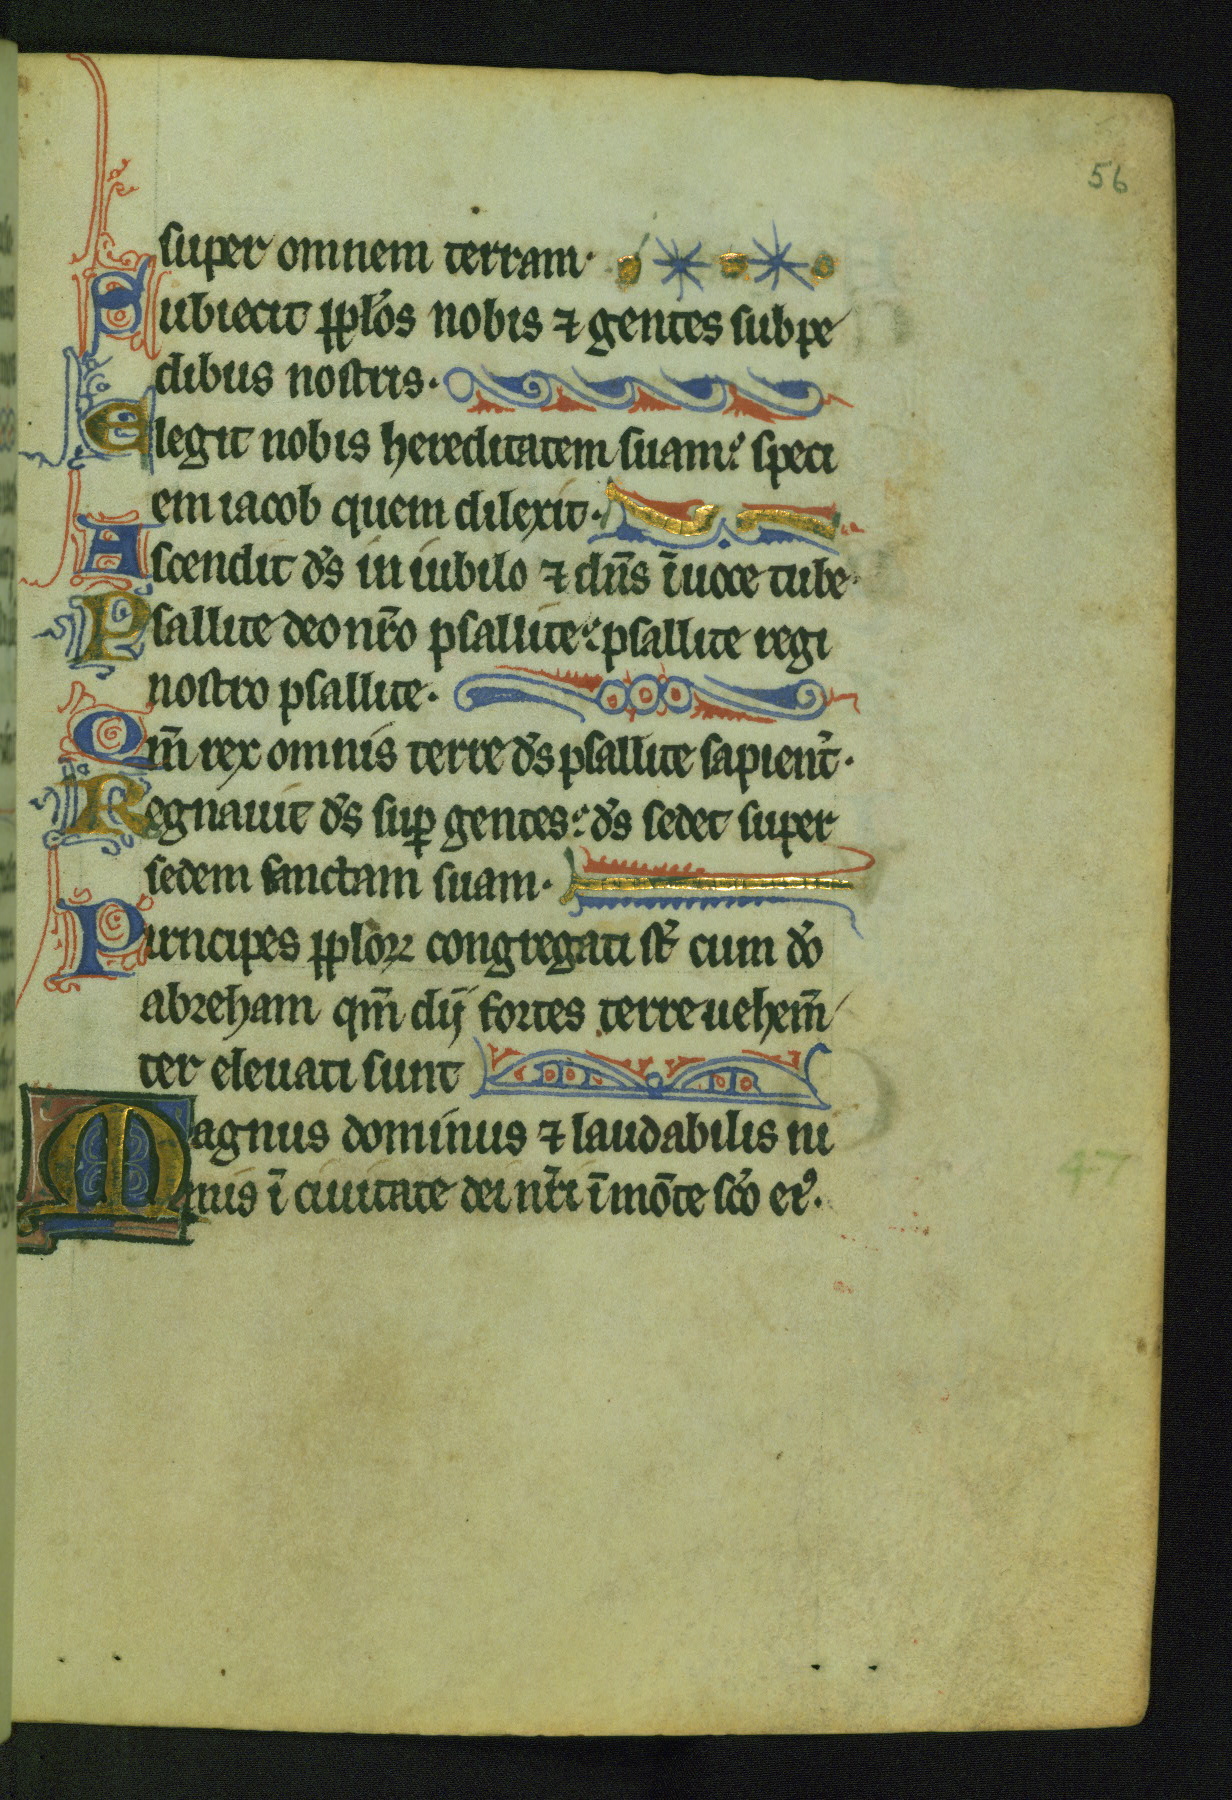 56
super omnem terram·
Subiecit pp̱lo̅s nobis ⁊ gentes sub pe
dibus nostris·
Elegit nobis hereditatem suam: speci
em iacob quem dilexit·
Ascendit d̅s in iubilo ⁊ dn̅s i̅ uoce tube·
Psallite deo nr̅o psallite: psallite regi
nostro psallite·
Qm̅ rex omnis terre d̅s psallite sapient̅·
Regnauit d̅s suꝑ gentes: d̅s sedet super
sedem sanctam suam·
Pirncipes pp̱loꝝ congregati st̅ cum d̅o
abreham qm̅ dij fortes terre uehem̅
ter eleuati sunt
Magnus dominus ⁊ laudabilis ni
47
mis i̅ ciuitate dei nr̅i i̅ mo̅te sc̅o eiꝰ·